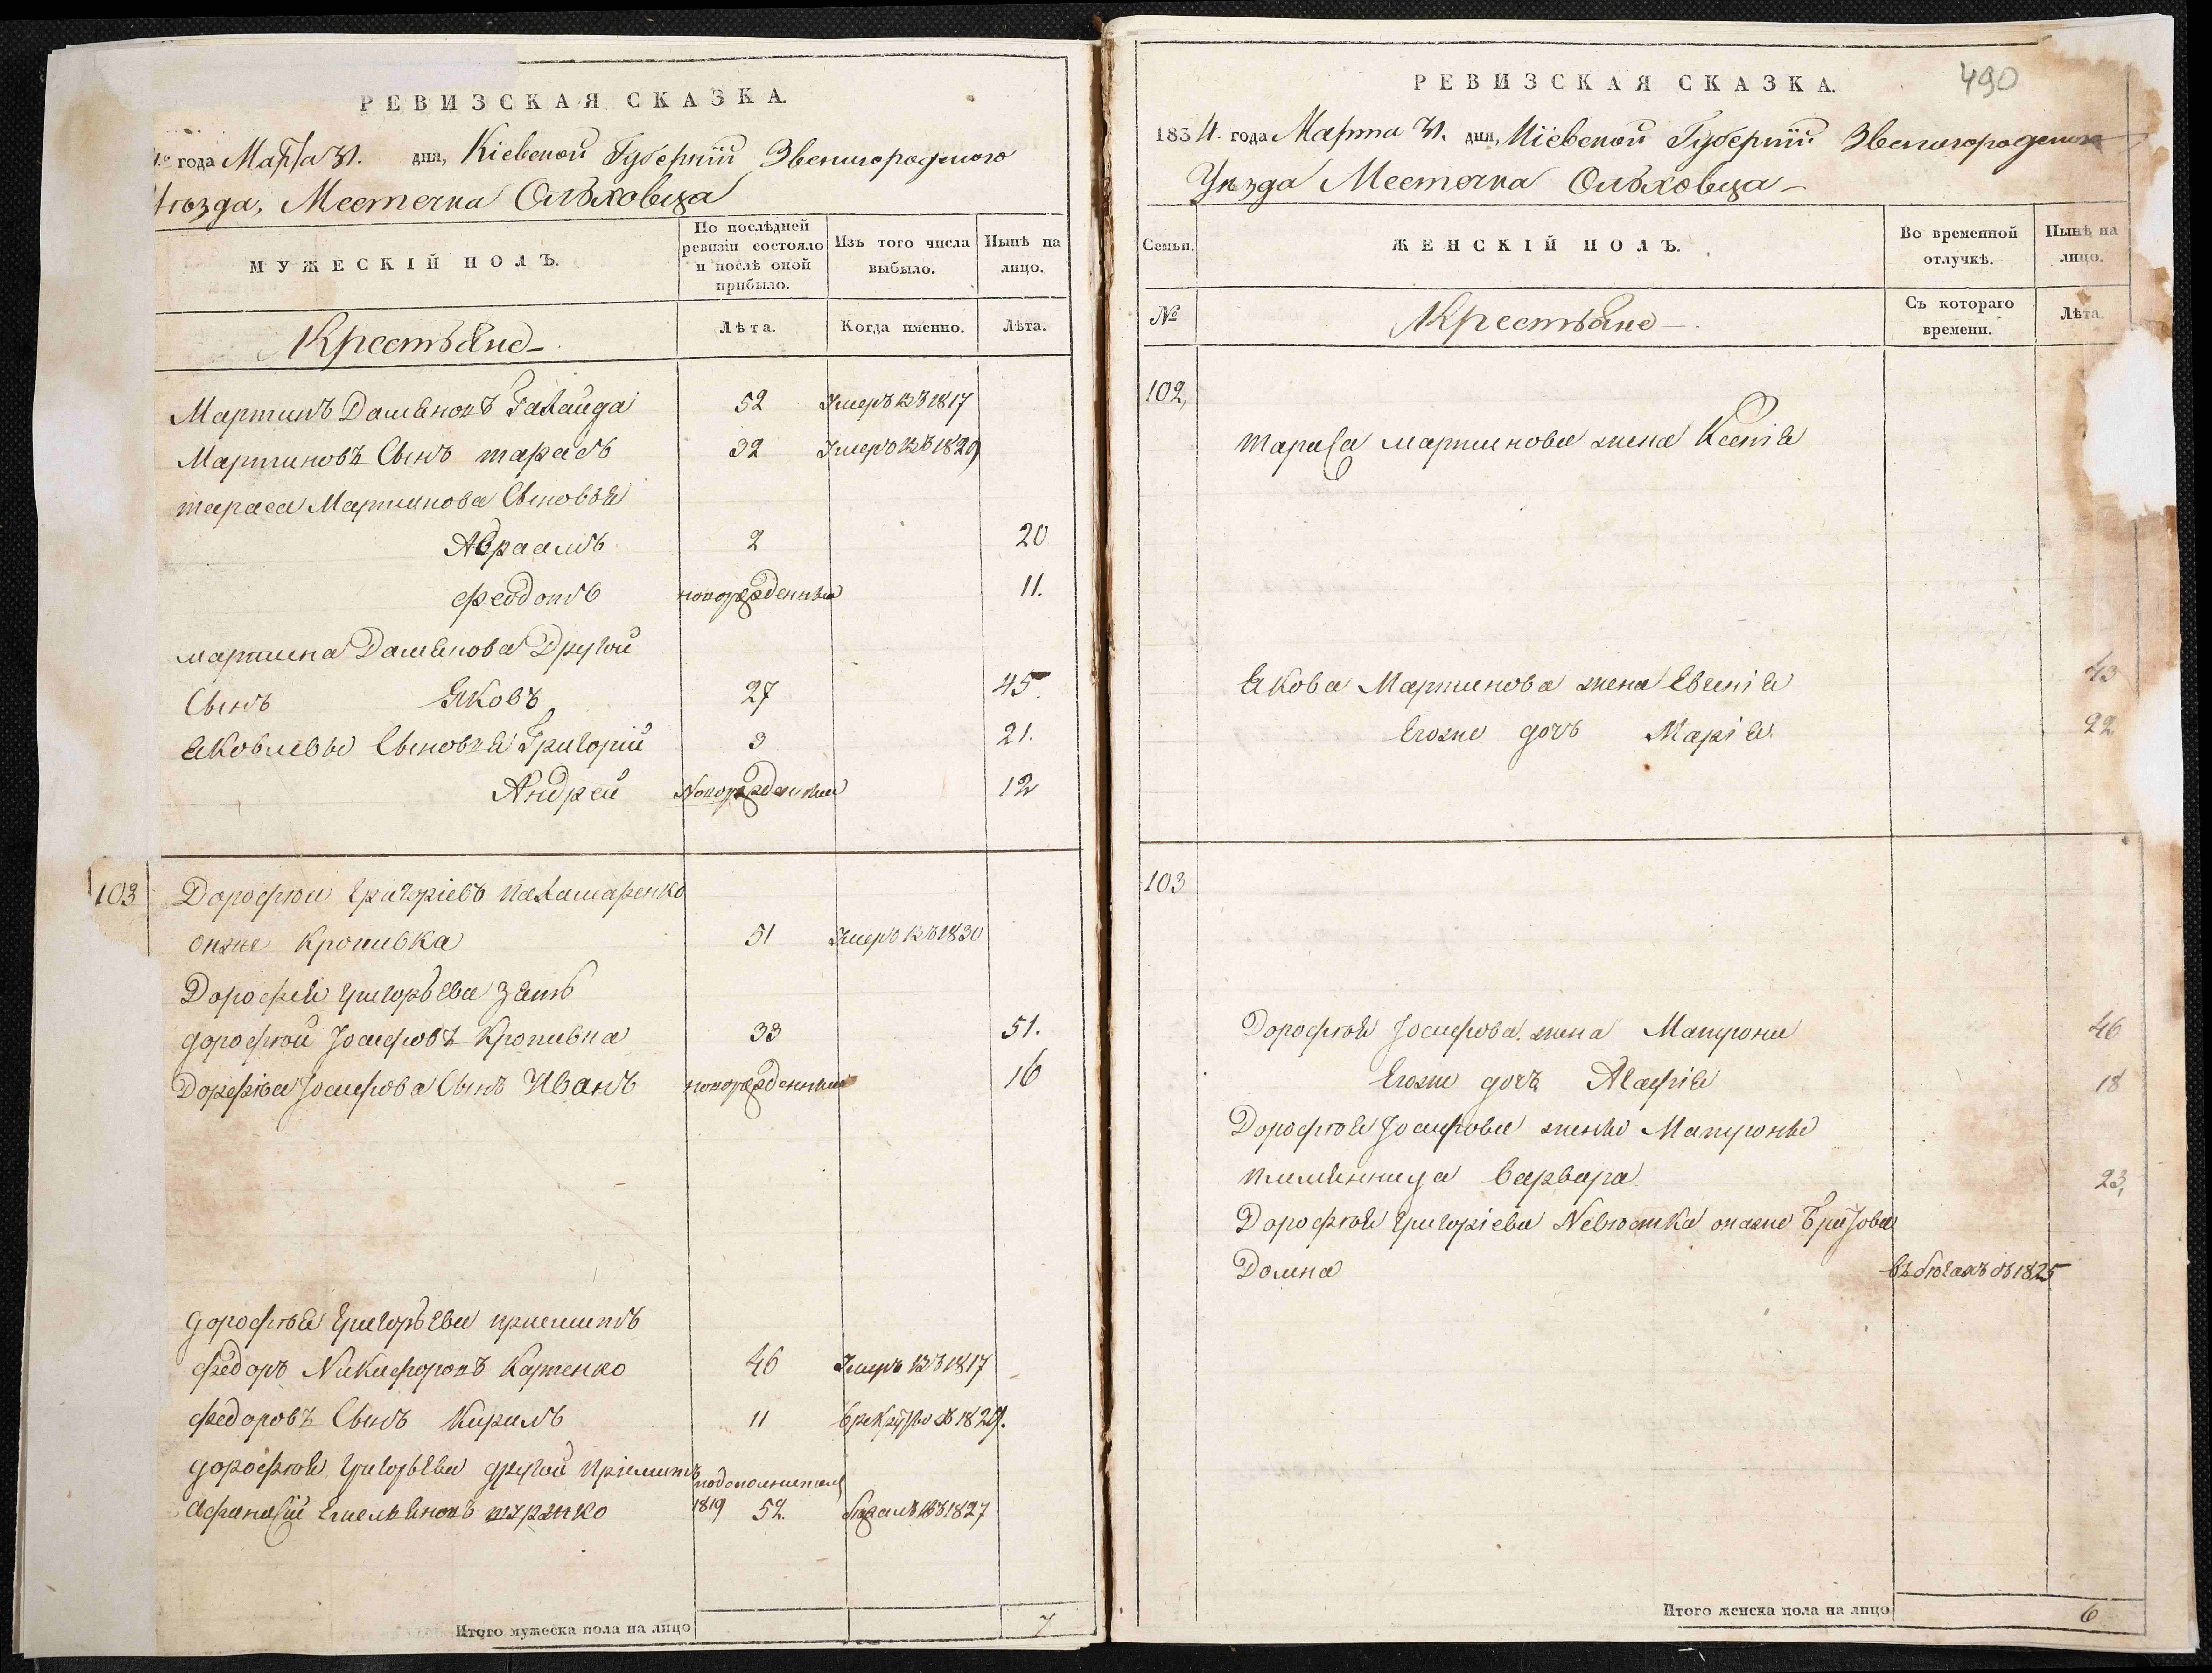 РЕВИЗСКАЯ СКАЗКА.
года Марта 31. дня, Кіевской Губерніи Звенигородского
уѣзда, Местечка Ольховца
МУЖЕСКІЙ ПОЛЪ.
По послѣдней ревизіи состояло и послѣ оной прибыло.
Изъ того числа выбыло.
Нынѣ на лицо.
Крестьяне
Лѣта.
Когда именно.
Лѣта.
Мартинъ Дамяновъ Гайда 52 Умеръ въ 1817
Мартиновъ Сынъ тарасъ 32 Умеръ въ 1829
тараса Мартинова Сыновья
Авраамъ 2 20
Феодотъ новорожденный 11.
мартина Дамянова Другой
Сынъ Яковъ 27 45.
Яковлевы Сыновья Григорій 3 21.
Андрей Новорожденный 12
103 Дорофей Григоріевъ Паламаренко
онже Кропивка 51 Умеръ въ 1830
Дорофея Григорьева Зять
дорофей Іосифовъ Кропивка 33 51.
Дорофея Іосифова Сынъ Иванъ новорожденный 16
дорофея Григорьева приемишъ
Федоръ Никифоровъ Картенко 46 Умеръ въ 1817
Федоровъ Сынъ Кирилъ 11 в рекруты в 1829.
дорофея Григорьева другой пріемишъ
Афанасій Емельяновъ 1819 52. бѣжалъ въ 1827
Итого мужеска пола на лицо 7
490
РЕВИЗСКАЯ СКАЗКА.
1834. года Марта 31. дня, Кіевской Губерніи Звенигородского
Уѣзда Местечка Ольховца
Семьи.
ЖЕНСКІЙ ПОЛЪ.
Во временной отлучкѣ.
Нынѣ на лицо.
№
Крестьяне
Съ котораго времени.
Лѣта.
102,
тараса мартинова жена Ксенія
Якова Мартинова жена Евгенія 43
Егоже дочь Марія 22
103
Дорофея Іосифова жена Матрона 46
Егоже дочь Агафія 18
Дорофея Іосифова жены Матроны
племянница Варвара 23,
Дорофея Григоріева Невѣстка онаже
Домна въ бѣгахъ съ 1825
Итого женска пола на лицо 6